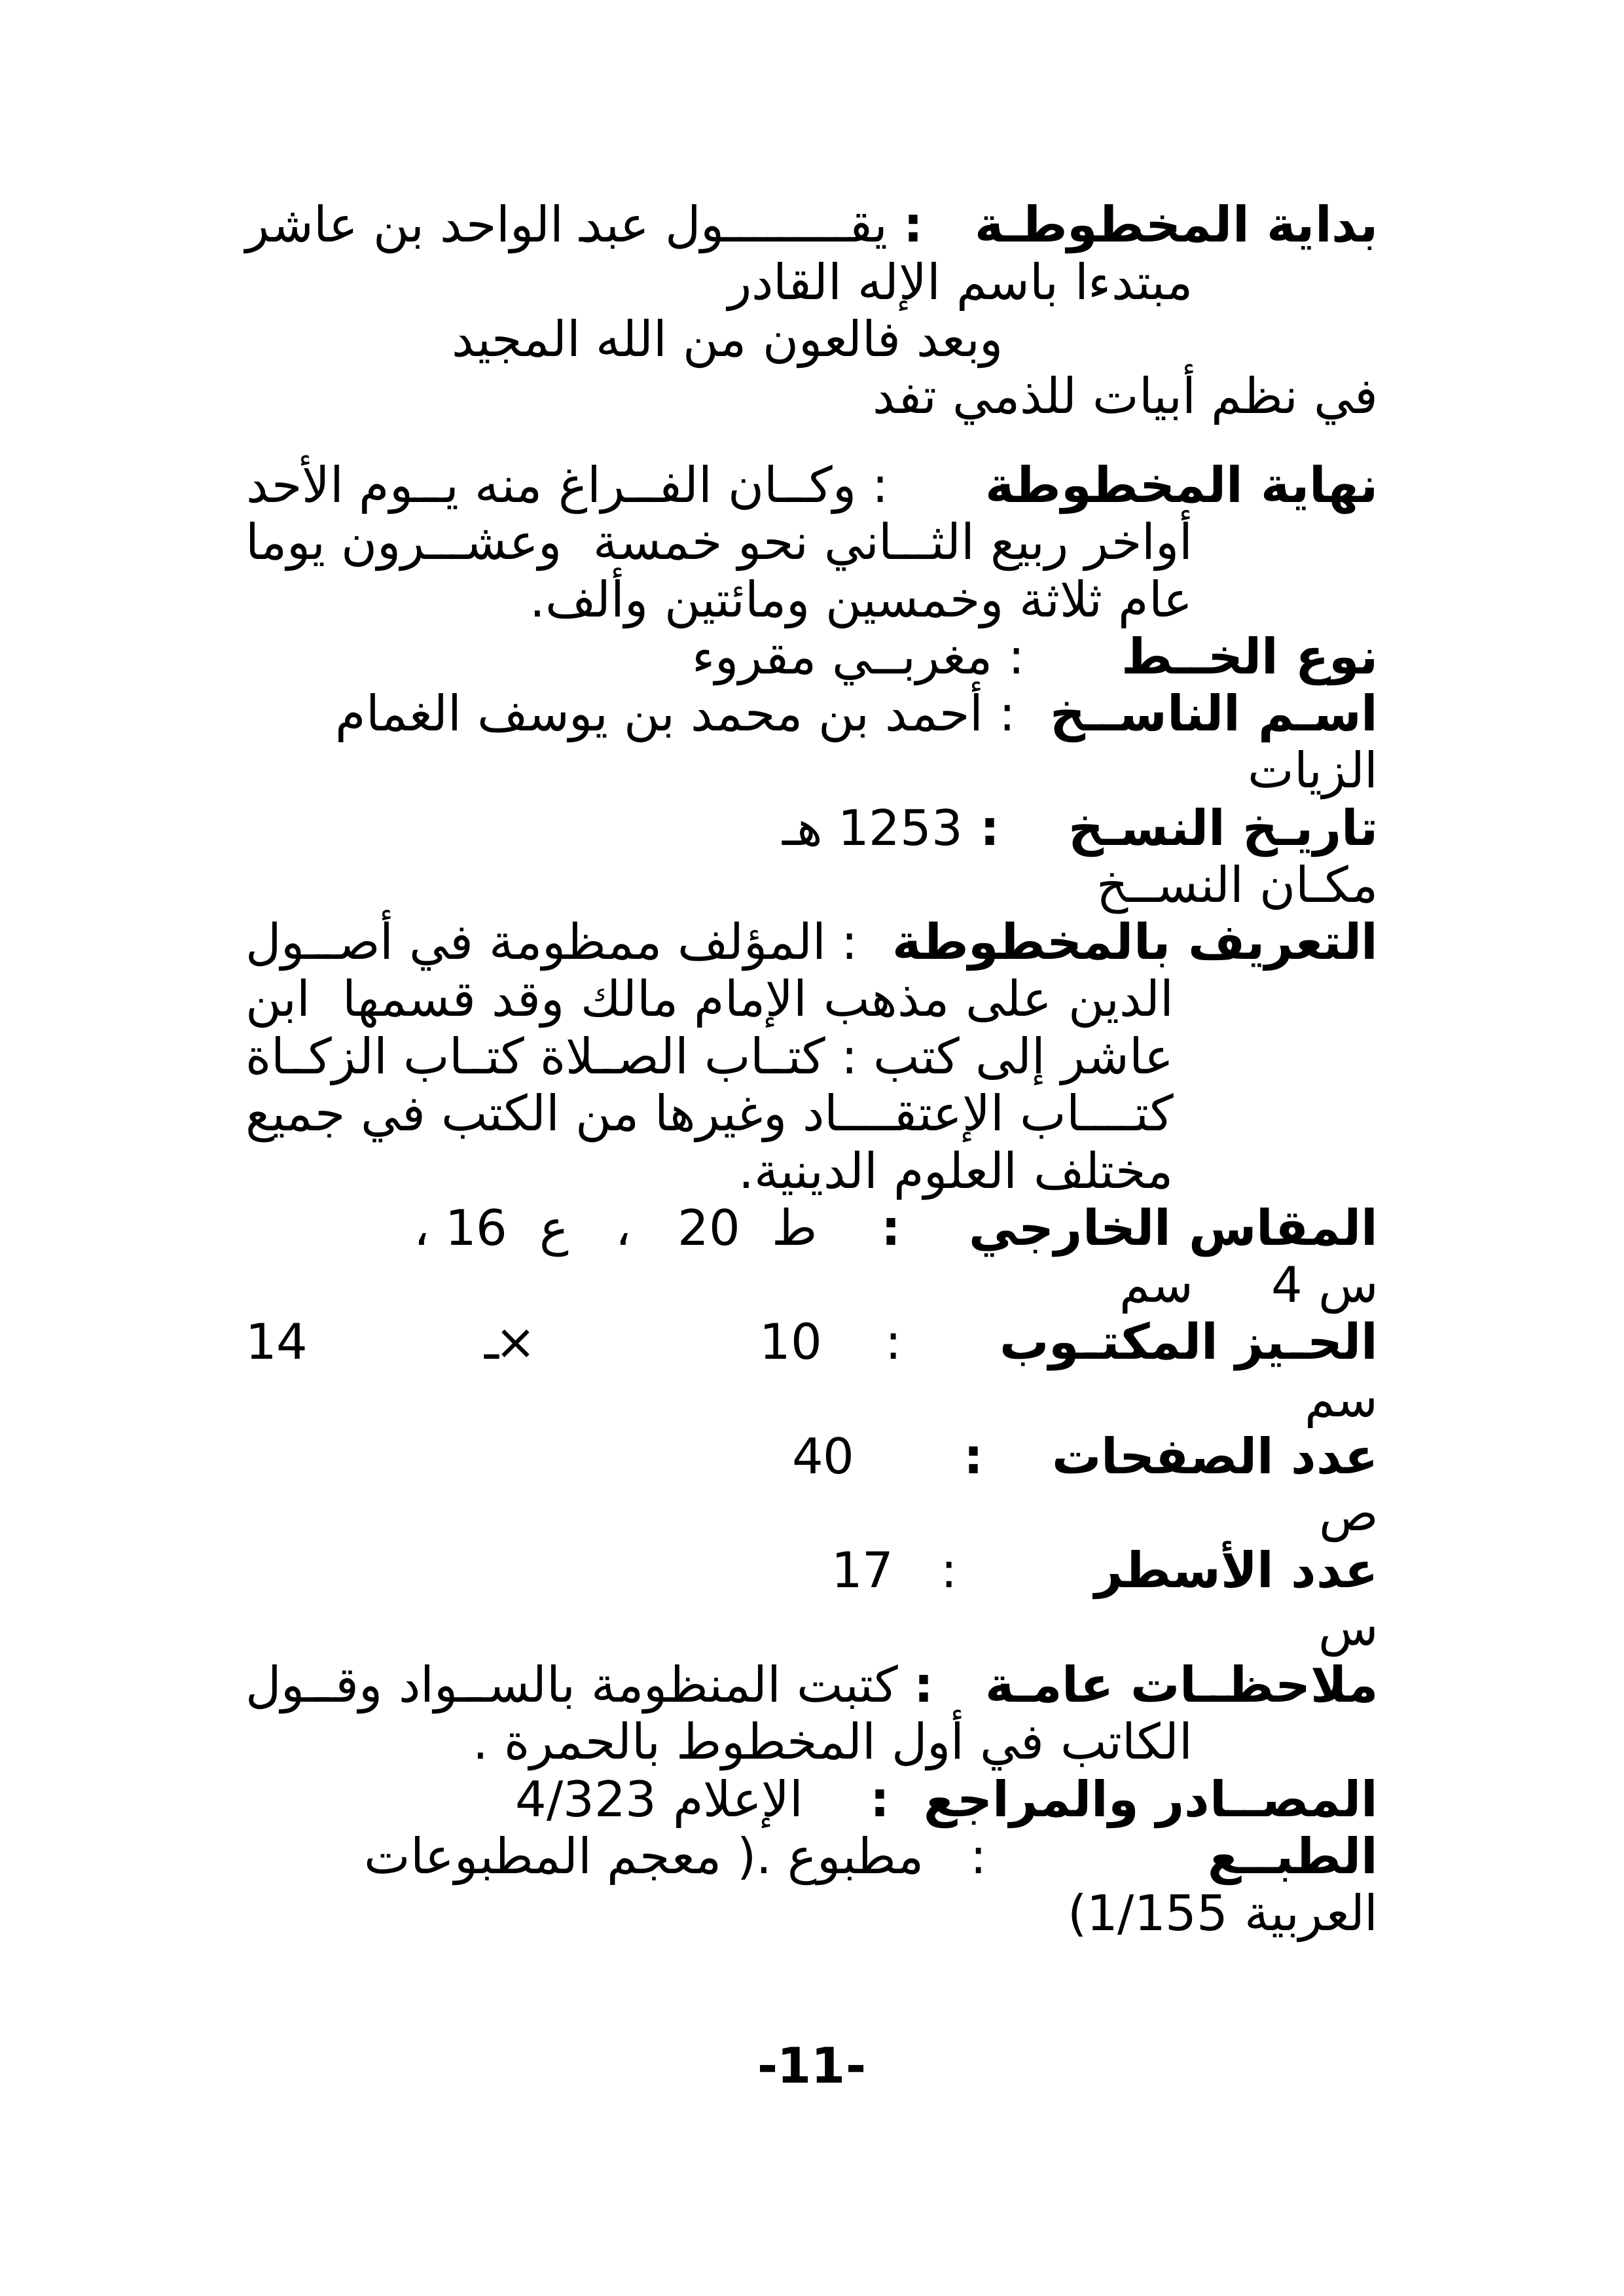 بداية المخطوطـة : يقــــــــول عبد الواحد بن عاشر
مبتدءا باسم الإله القادر
وبعد فالعون من الله المجيد
في نظم أبيات للذمي تفد
نهاية المخطوطة : وكــان الفــراغ منه يــوم الأحد
أواخر ربيع الثـــاني نحو خمسة وعشـــرون يوما
عام ثلاثة وخمسين ومائتين وألف.
نوع الخــط : مغربــي مقروء
اسـم الناســخ : أحمد بن محمد بن يوسف الغمام
الزيات
تاريـخ النسـخ : 1253 هـ
مكـان النســخ
التعريف بالمخطوطة : المؤلف ممظومة في أصــول
الدين على مذهب الإمام مالك وقد قسمها ابن
عاشر إلى كتب : كتــاب الصــلاة كتــاب الزكــاة
كتــــاب الإعتقــــاد وغيرها من الكتب في جميع
مختلف العلوم الدينية.
المقاس الخارجي : ط 20 ، ع 16 ،
س 4 سم
الحـيز المكتـوب : 10 ×ـ 14
سم
عدد الصفحات : 40
ص
عدد الأسطر : 17
س
ملاحظــات عامـة : كتبت المنظومة بالســواد وقــول
الكاتب في أول المخطوط بالحمرة .
المصــادر والمراجع : الإعلام 4/323
الطبــع : مطبوع .( معجم المطبوعات
العربية 1/155)
-11-